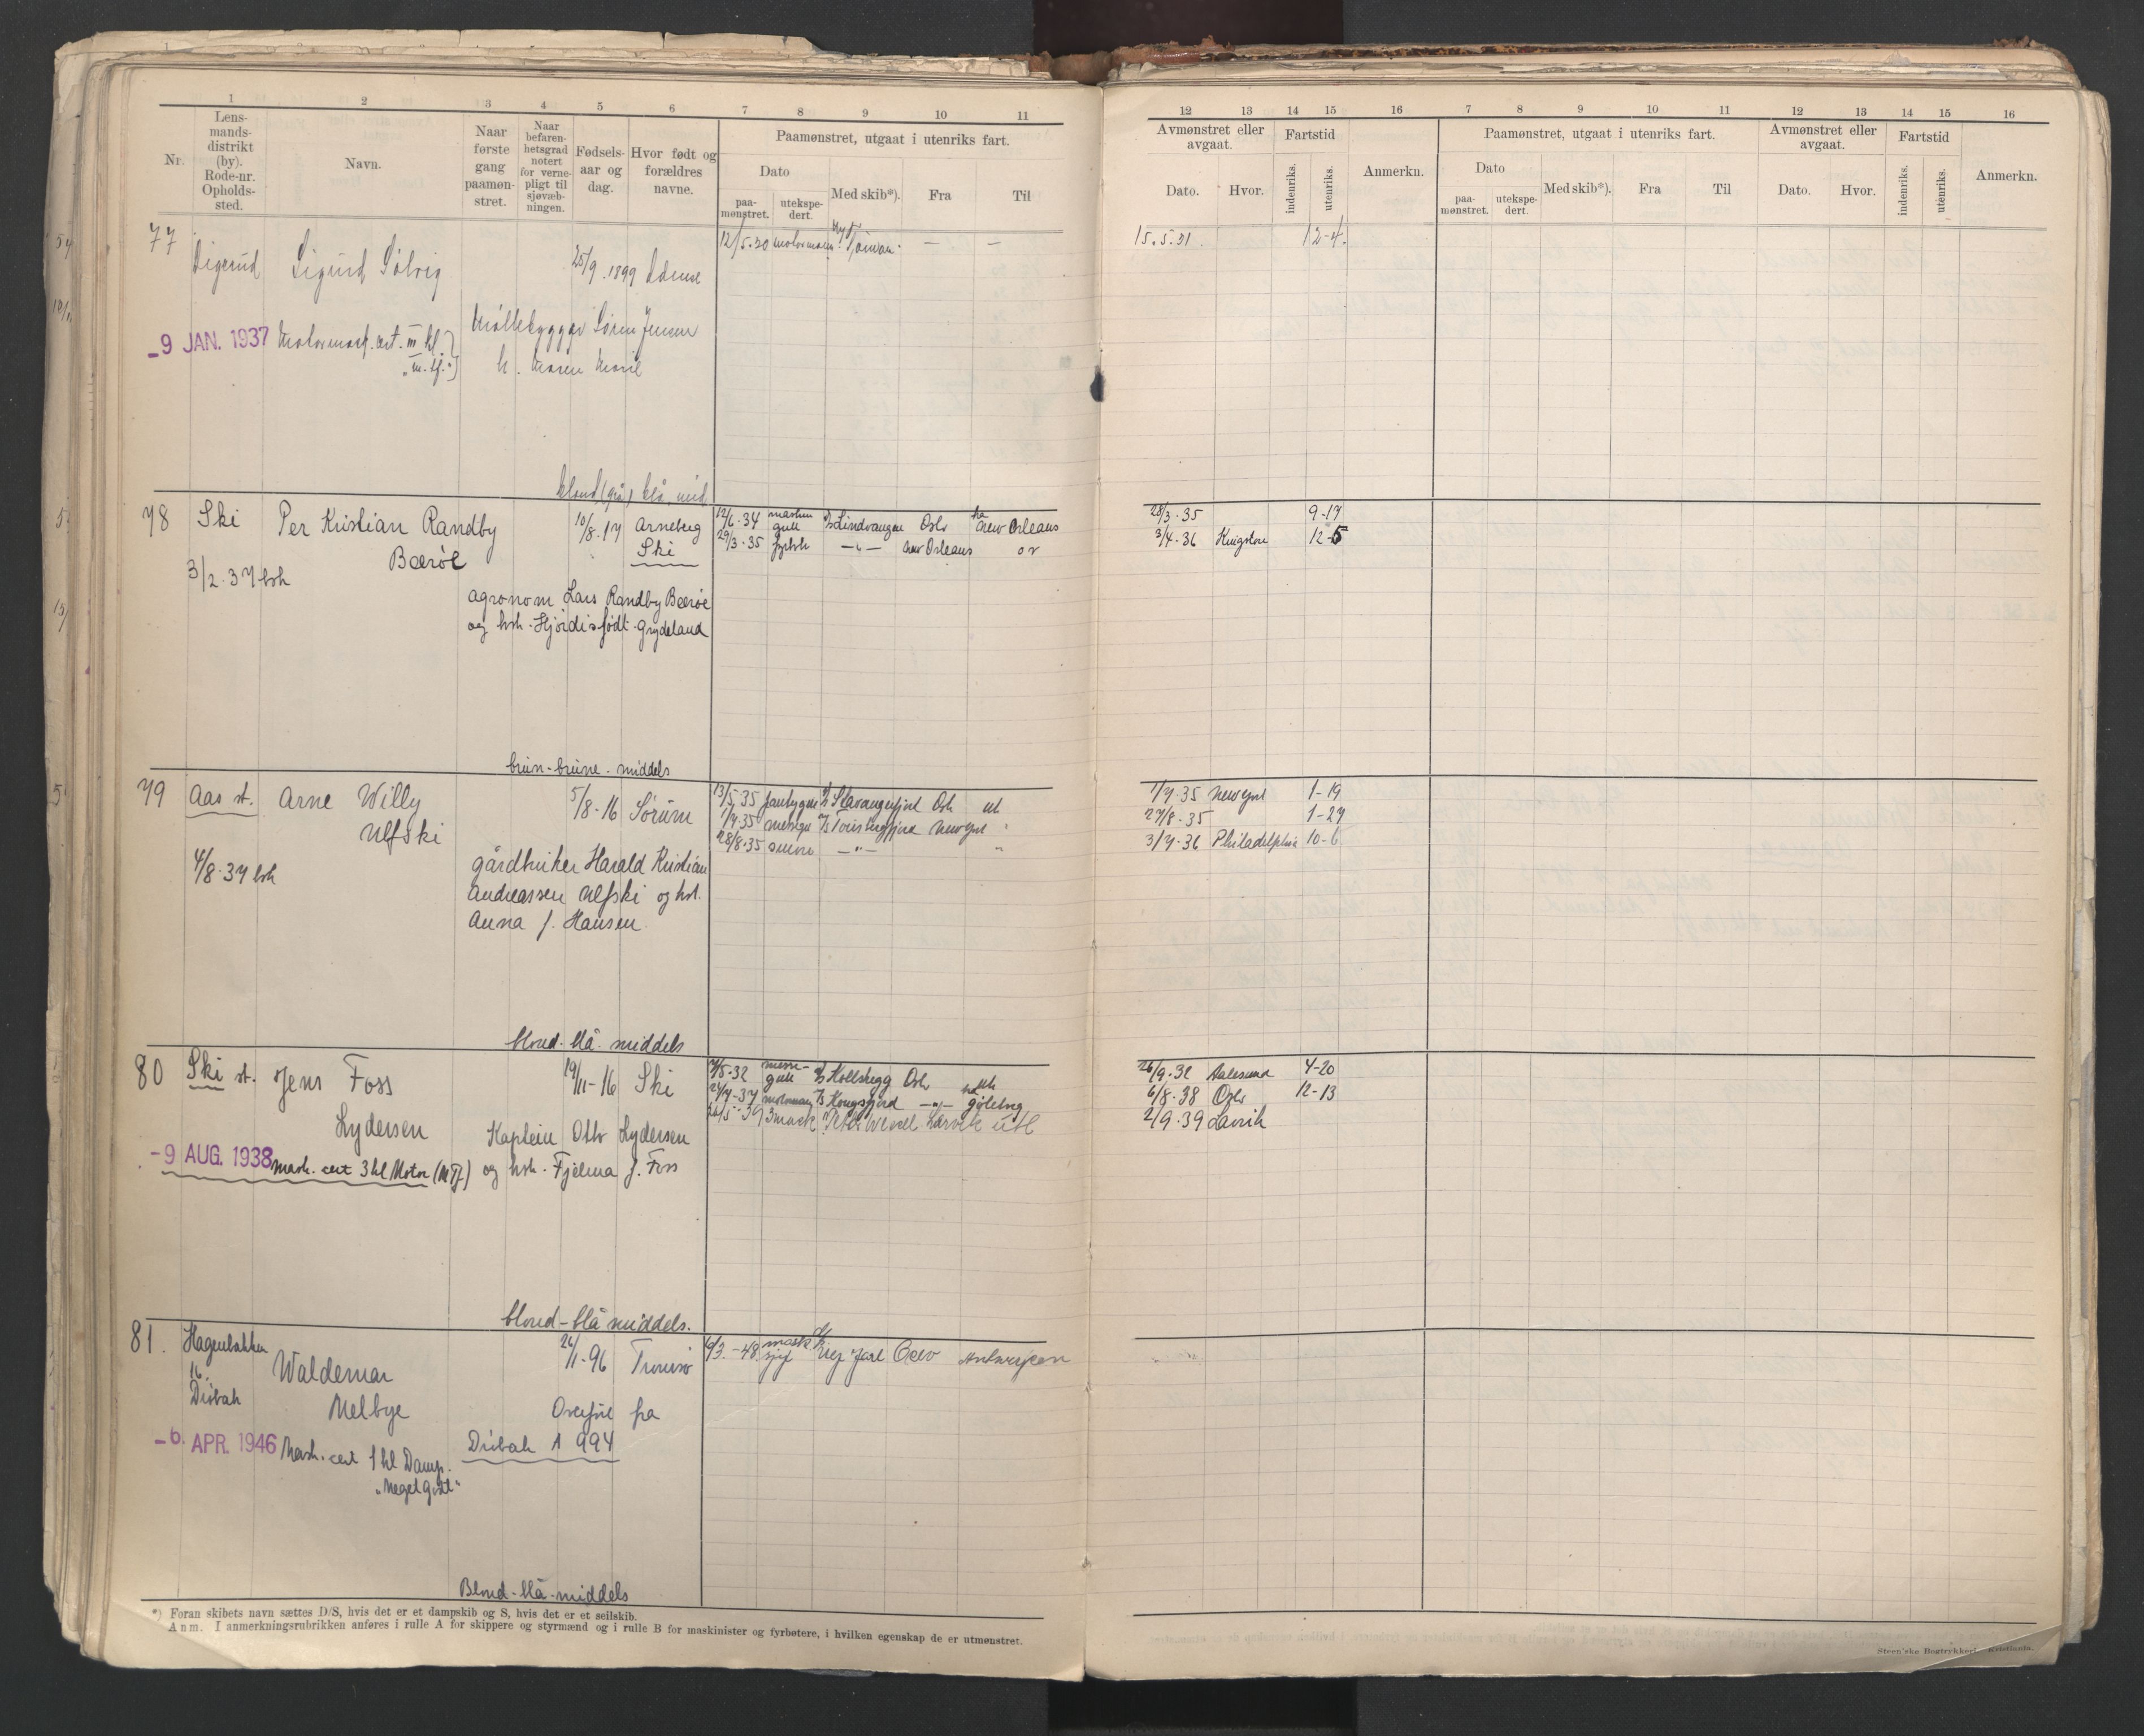 1 2 3 4 5 6 7 8 9 10 11
Nr.
Lens-
mands-
distrikt
(by).
Rode-nr.
Opholds-
sted.
Navn.
Naar
første
gang
paamøn-
stret.
Naar
befaren-
hetsgrad
notert
for verne-
pligt til
sjøvæb-
ningen.
Fødsels-
aar og
dag.
Hvor født og
forældres
navne.
Paamønstret, utgaat i utenriks fart.
Dato
paa-
mønstret.
utekspe-
dert.
Med skib*).
Fra
Til
12 13 14 15 16 7 8 9 10 11 12 13 14 15 16
Avmønstret eller
avgaat.
Dato.
Hvor.
Fartstid
indenriks.
utenriks.
Anmerkn.
Paamønstret, utgaat i utenriks fart.
Dato
paa-
mønstret.
utekspe-
dert.
Med skib*).
Fra
Til
Avmønstret eller
avgaat.
Dato.
Hvor.
Fartstid
indenriks.
utenriks.
Anmerkn.
77 Digerud Sigurd Sølvig 25/9 . 1899
12/5.30 — —
15.5.31. 12-4.
Møllebygger Søren Jensen
-9 JAN. 1937 h. Maren Marie
blond (grå) blå, mid
78 Ski Per Kristian Randby 10/8-17 Arneberg
Beerøe Ski
3/2.37 bsh
agronom Lars Randby Beerøe
og hstr. Hjørdis født Grydeland
12/6-34 gutt Lindvangen Oslo New Orleans
29/3-35 fyrbt —"— New Orleans
28/3-35 9-17
3/4-36 Kingston 12-5
brun-brune-middels
79 Aas st. Arne Willy 5/8-16 Sørum
Ulfski
4/8-37 bsh
gårdbruker Harald Kristian
Andreassen Ulfski og hst.
Anna f. Hansen
13/5-35 Stavangerfjord ut
1/7-35 New York
28/8-35 —"—
1/7-35 New York 1-19
27/8-35 1-27
3/7-36 Philadelphia 10-6
blond-blå-middels
80 Ski st. Jens Foss 19/11-16 Ski
Lydersen
Kaptein Otto Lydersen
-9 AUG. 1938 mask. cert 3 kl Motor (MTf.) og hstr. Fjelma f. Foss
messe-
gutt Oslo
motorman Kongsfjord —"— Gøteborg
3 mask Peter Wessel Larvik utl
26/9-32 Aalesund 4-20
6/8-38 Oslo 12-13
2/9-39 Larvik
blond-blå middels.
81. 16. Drøbak Waldemar 26/1-96 Tromsø
Melbye
Overført fra
Drøbak A 994
-6. APR. 1946 Mask. cert 1 kl Damp.
"Meget Godt"
6/3-48 mask Jarl Oslo Antwerpen
Blond-blå-middels
*) Foran skibets navn sættes D/S, hvis det er et dampskib og S, hvis det er et seilskib.
Anm. I anmerkningsrubrikken anføres i rulle A for skippere og styrmænd og i rulle B for maskinister og fyrbøtere, i hvilken egenskap de er utmønstret.
Steen'ske Bogtrykkeri, Kristiania.